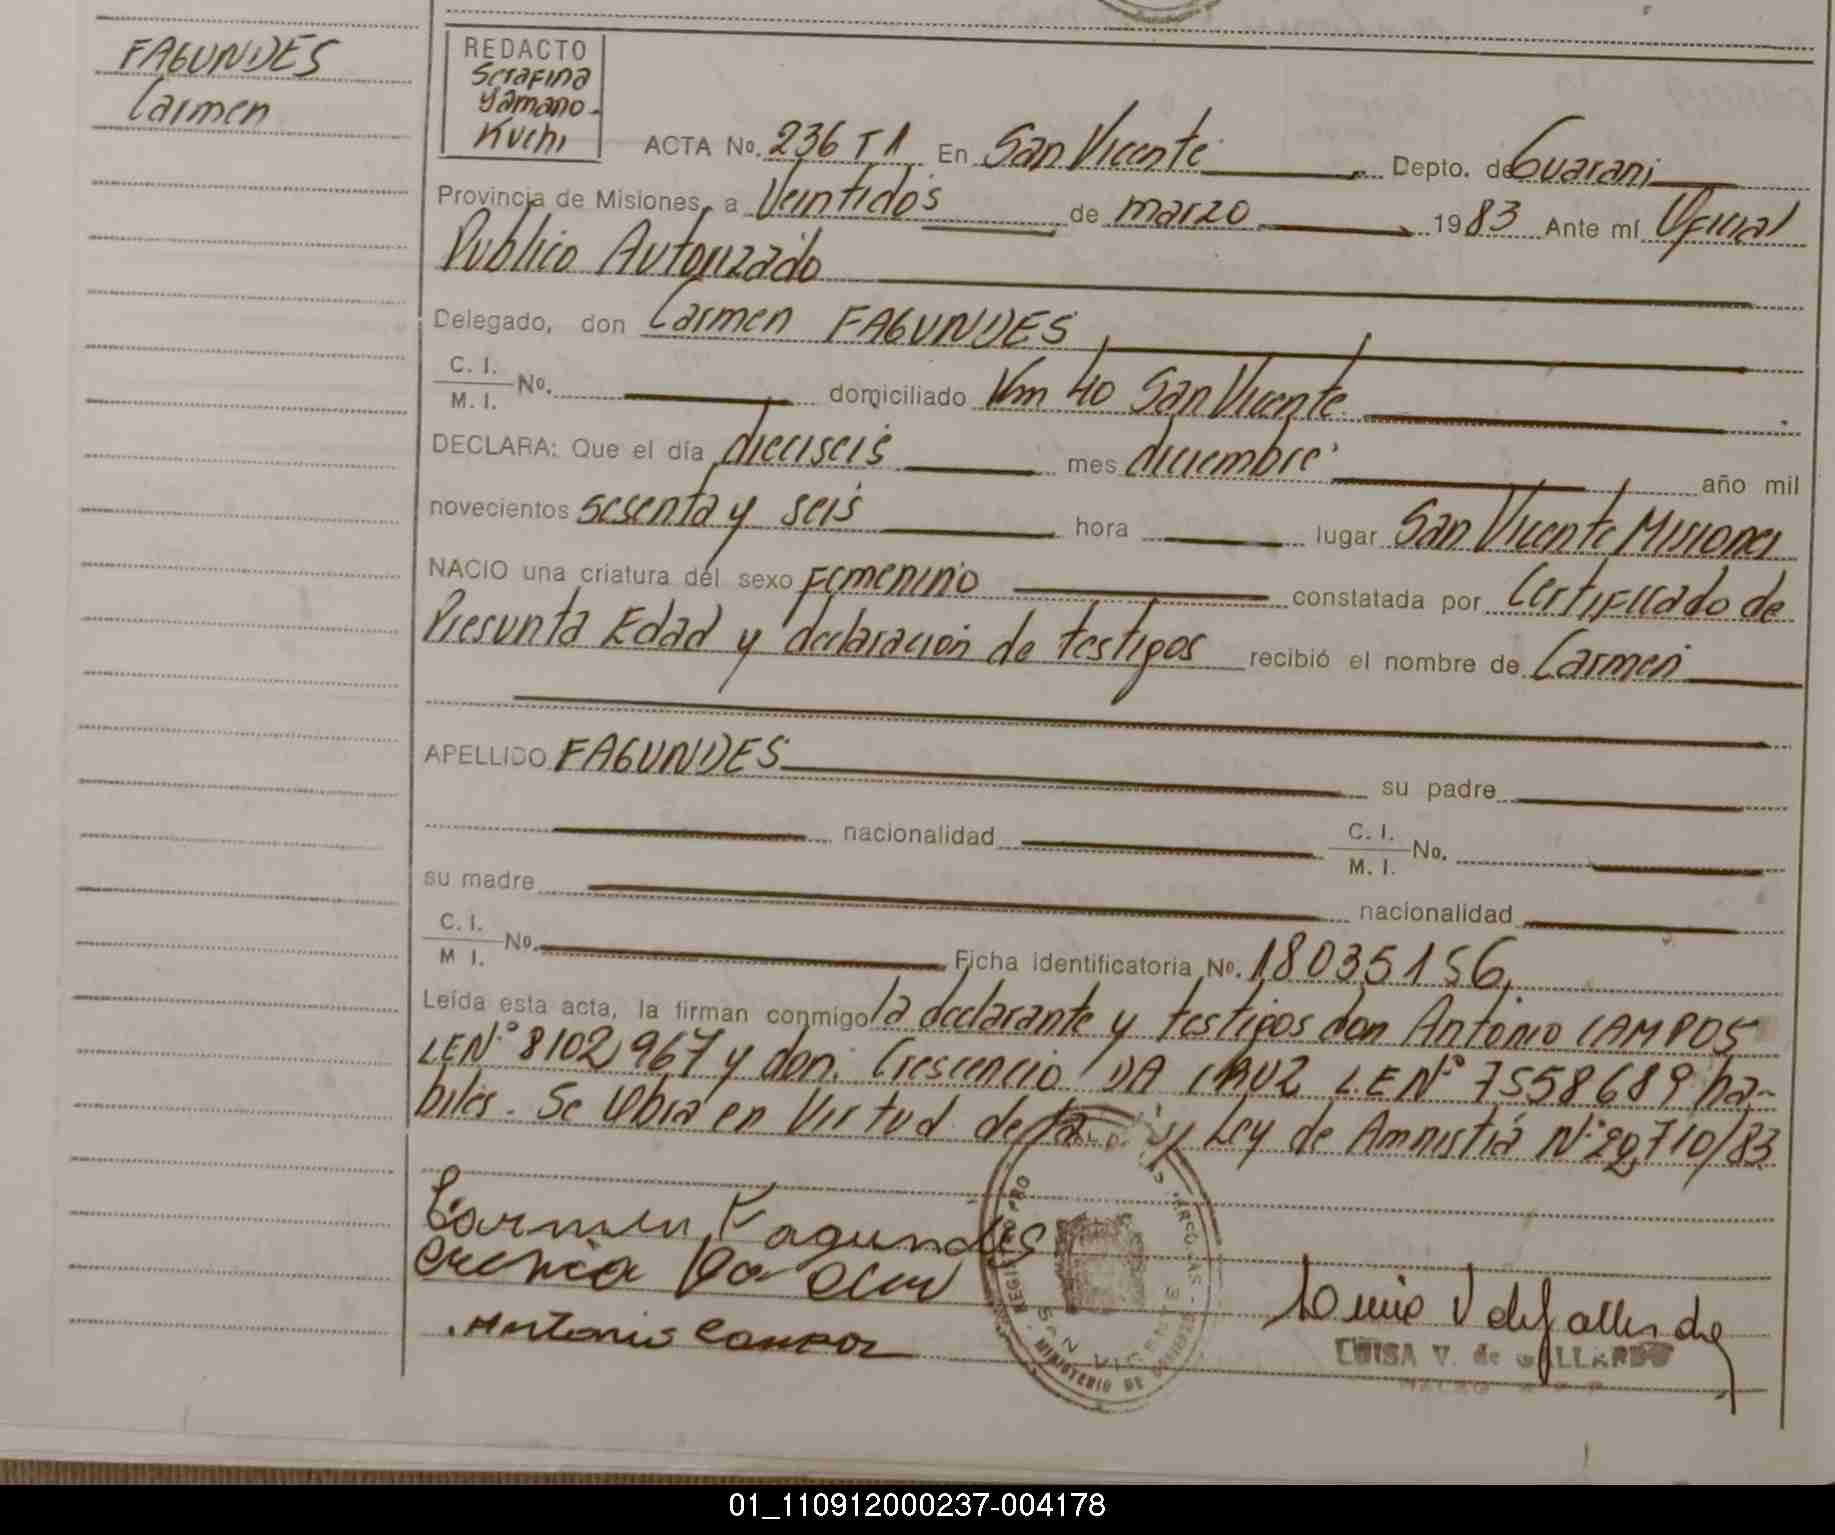 FAGUNDES
Carmen
REDACTO
Serafina
Yamano
Kuchi
ACTA No. 236 T 1 En San Vicente Depto. de Guarani
Provincia de Misiones, a Veintidos de marzo 1983 Ante mí Oficial
Publico Autorizado
Delegado, don Carmen FAGUNDES
C. I.
M. I. No. domiciliado Km 40 San Vicente
DECLARA: Que el día dieciseis mes diciembre año mil
novecientos sesenta y seis hora lugar San Vicente Misiones
NACIO una criatura del sexo Femenino constatada por Certificado de
Presunta Edad y declaración de testigos recibió el nombre de Carmen
APELLIDO FAGUNDES su padre
nacionalidad C. I.
M. I. No.
su madre nacionalidad
C. I.
M I. No. Ficha identificatoria No. 18035156
Leída esta acta, la firman conmigo la declarante y testigos don Antonio CAMPOS
LEN° 8102967 y don. Crescencio DA CRUZ L.E N° 7558689 ha-
biles. Se labra en Virtud de la Ley de Amnistia N° 22,710/83
Carmen Fagundes
Antonio Campos
SAN VICENTE
MINISTERIO DE GOBIERNO
LUISA V. de GALLARDO
01_110912000237-004178